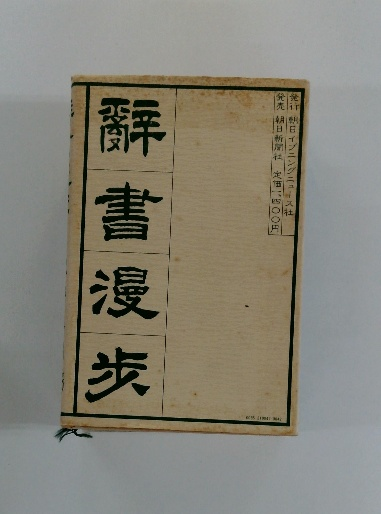 辭書漫步
発行 朝日イブニングニュース社
発売 朝日新聞社 定価一、四〇〇円